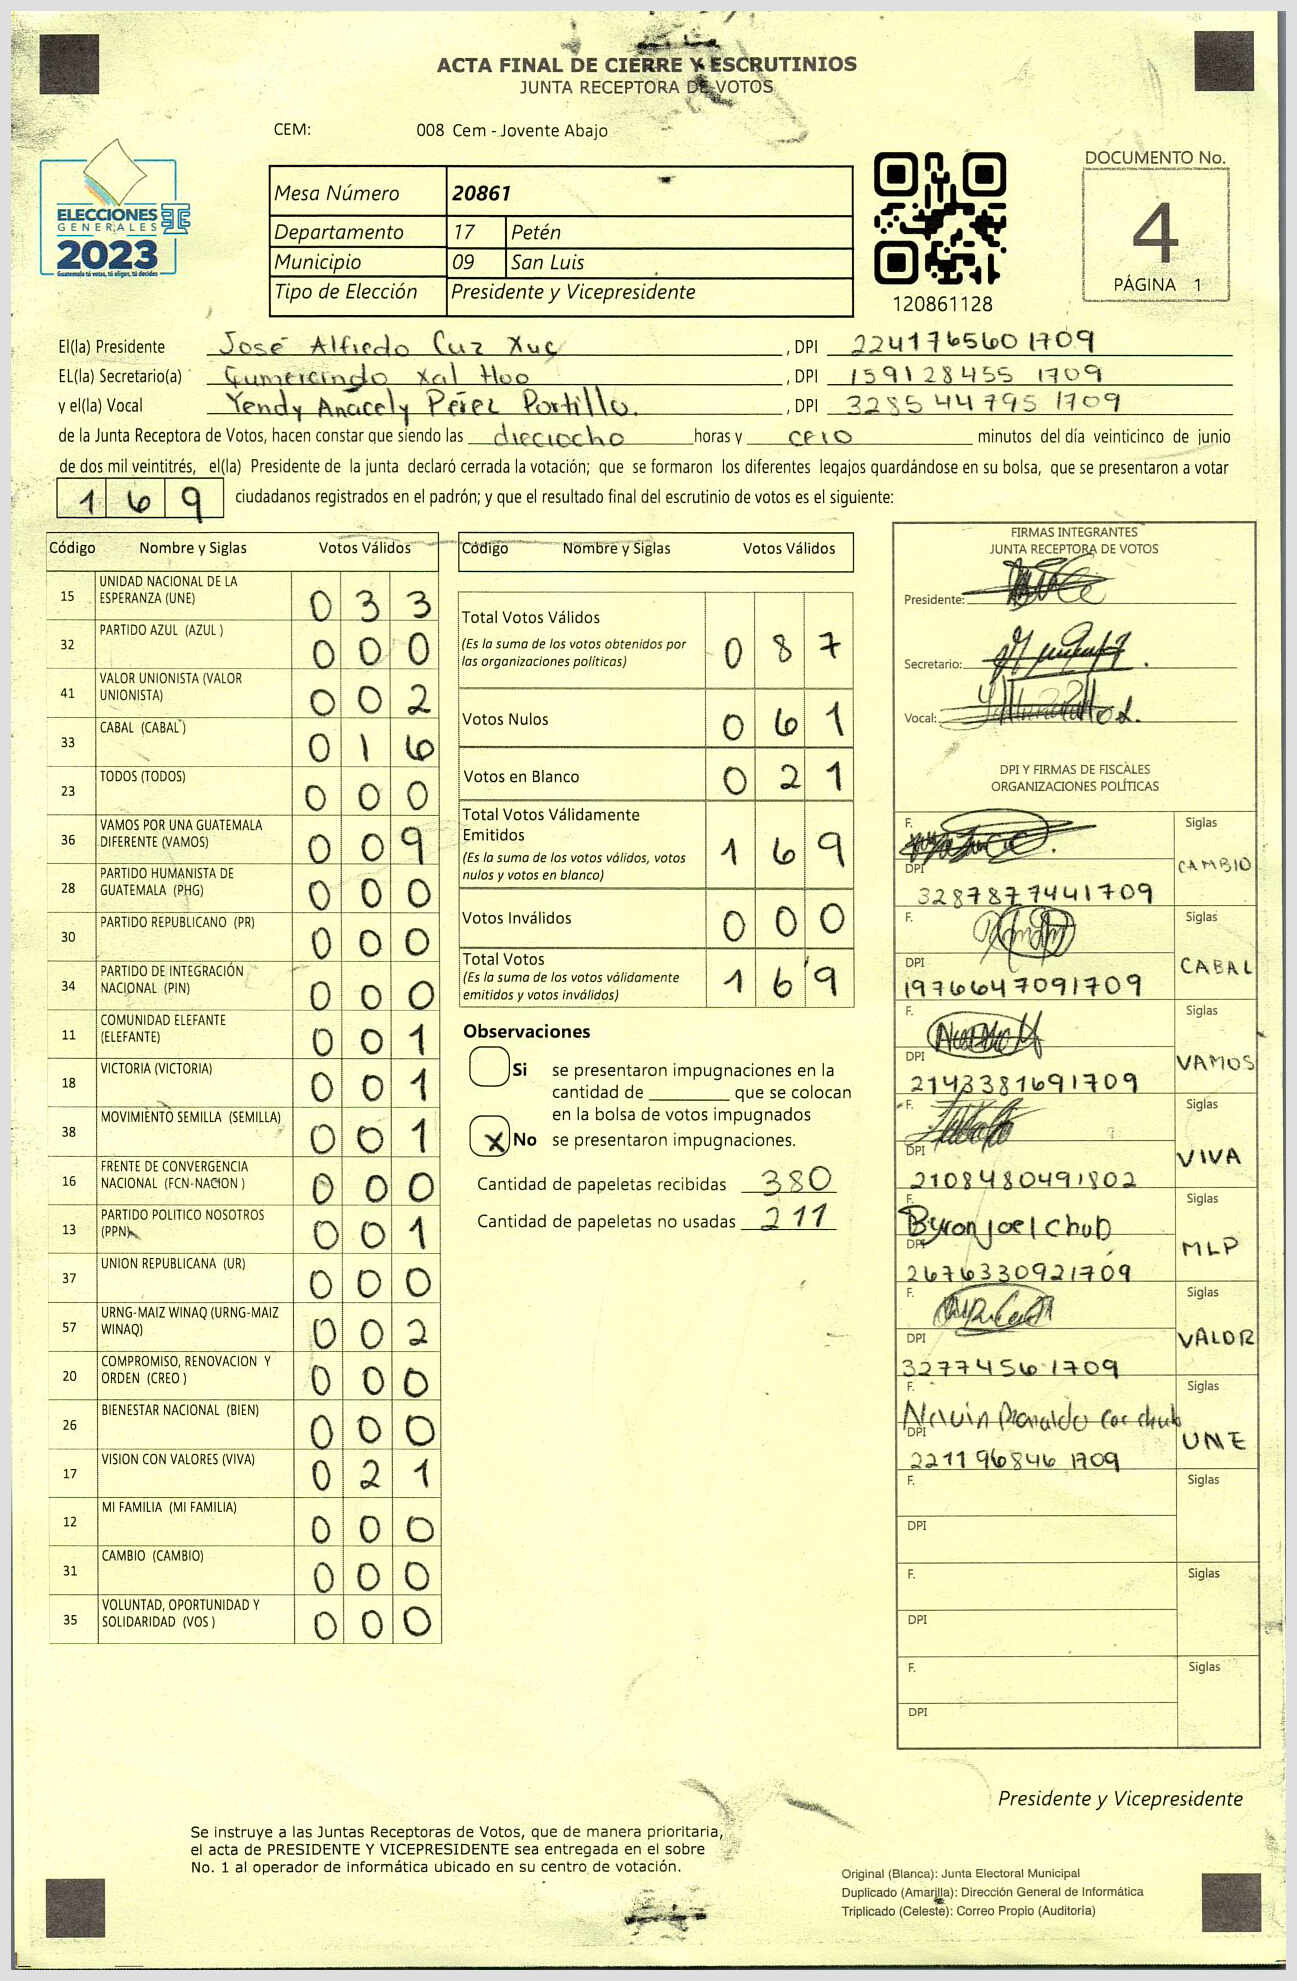 ACTA FINAL DE CIERRE Y ESCRUTINIOS
JUNTA RECEPTORA DE VOTOS
CEM: 008 Cem - Jovente Abajo
ELECCIONES
GENERALES
2023
Guatemala tú votas, tú eliges, tú decides
Mesa Número 20861
Departamento 17 Petén
Municipio 09 San Luis
Tipo de Elección Presidente y Vicepresidente
120861128
DOCUMENTO No.
4
PÁGINA 1
El(la) Presidente José Alfredo Cuz Xuc, DPI 2241765601709
EL(la) Secretario(a) Gumercindo Xal Hoo, DPI 159128455 1709
y el(la) Vocal Yendy Anacely Pérez Portillo., DPI 3285447951709
de la Junta Receptora de Votos, hacen constar que siendo las dieciocho horas y cero minutos del día veinticinco de junio
de dos mil veintitrés, el(la) Presidente de la junta declaró cerrada la votación; que se formaron los diferentes legajos guardándose en su bolsa, que se presentaron a votar
169 ciudadanos registrados en el padrón; y que el resultado final del escrutinio de votos es el siguiente:
Código Nombre y Siglas Votos Válidos
15 UNIDAD NACIONAL DE LA ESPERANZA (UNE) 033
32 PARTIDO AZUL (AZUL ) 000
41 VALOR UNIONISTA (VALOR UNIONISTA) 002
33 CABAL (CABAL ) 016
23 TODOS (TODOS) 000
36 VAMOS POR UNA GUATEMALA DIFERENTE (VAMOS) 009
28 PARTIDO HUMANISTA DE GUATEMALA (PHG) 000
30 PARTIDO REPUBLICANO (PR) 000
34 PARTIDO DE INTEGRACIÓN NACIONAL (PIN) 000
11 COMUNIDAD ELEFANTE (ELEFANTE) 001
18 VICTORIA (VICTORIA) 001
38 MOVIMIENTO SEMILLA (SEMILLA) 001
16 FRENTE DE CONVERGENCIA NACIONAL (FCN-NACION ) 000
13 PARTIDO POLITICO NOSOTROS (PPN) 001
37 UNION REPUBLICANA (UR) 000
57 URNG-MAIZ WINAQ (URNG-MAIZ WINAQ) 002
20 COMPROMISO, RENOVACION Y ORDEN (CREO ) 000
26 BIENESTAR NACIONAL (BIEN) 000
17 VISION CON VALORES (VIVA) 021
12 MI FAMILIA (MI FAMILIA) 000
31 CAMBIO (CAMBIO) 000
35 VOLUNTAD, OPORTUNIDAD Y SOLIDARIDAD (VOS ) 000
Código Nombre y Siglas Votos Válidos
Total Votos Válidos 087
(Es la suma de los votos obtenidos por
las organizaciones políticas)
Votos Nulos 061
Votos en Blanco 021
Total Votos Válidamente
Emitidos 169
(Es la suma de los votos válidos, votos
nulos y votos en blanco)
Votos Inválidos 000
Total Votos 169
(Es la suma de los votos válidamente
emitidos y votos inválidos)
Observaciones
Si se presentaron impugnaciones en la
cantidad de ________ que se colocan
en la bolsa de votos impugnados
X No se presentaron impugnaciones.
Cantidad de papeletas recibidas 380
Cantidad de papeletas no usadas 211
FIRMAS INTEGRANTES
JUNTA RECEPTORA DE VOTOS
Presidente:
Secretario:
Vocal:
DPI Y FIRMAS DE FISCALES
ORGANIZACIONES POLÍTICAS
F. Siglas
DPI CAMBIO
3287877441709
F. Siglas
DPI CABAL
1976647091709
F. Siglas
DPI VAMOS
2143381691709
F. Siglas
DPI VIVA
2108480491802
F. Siglas
Byron Joel Chub
DPI MLP
2676330921709
F. Siglas
DPI VALOR
32774561709
F. Siglas
Ronaldo Coc chub
DPI UNE
2211968461709
F. Siglas
DPI
F. Siglas
DPI
F. Siglas
DPI
Presidente y Vicepresidente
Se instruye a las Juntas Receptoras de Votos, que de manera prioritaria,
el acta de PRESIDENTE Y VICEPRESIDENTE sea entregada en el sobre
No. 1 al operador de informática ubicado en su centro de votación.
Original (Blanca): Junta Electoral Municipal
Duplicado (Amarilla): Dirección General de Informática
Triplicado (Celeste): Correo Propio (Auditoría)